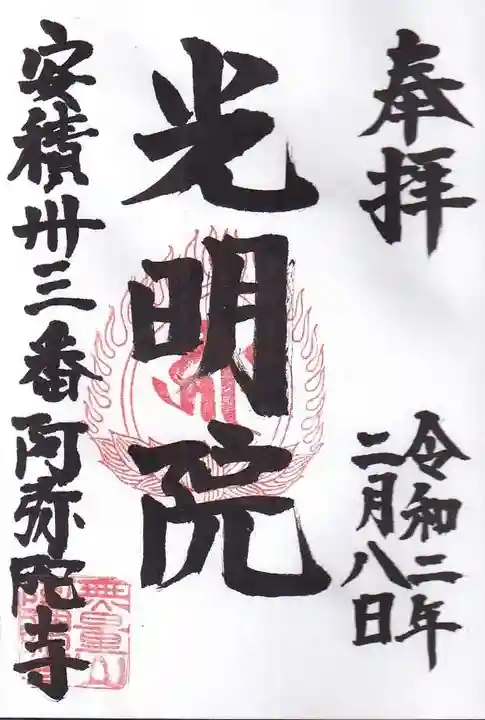 奉拝
令和二年
二月八日
光明院
安積卅三番阿弥陀寺
無量山